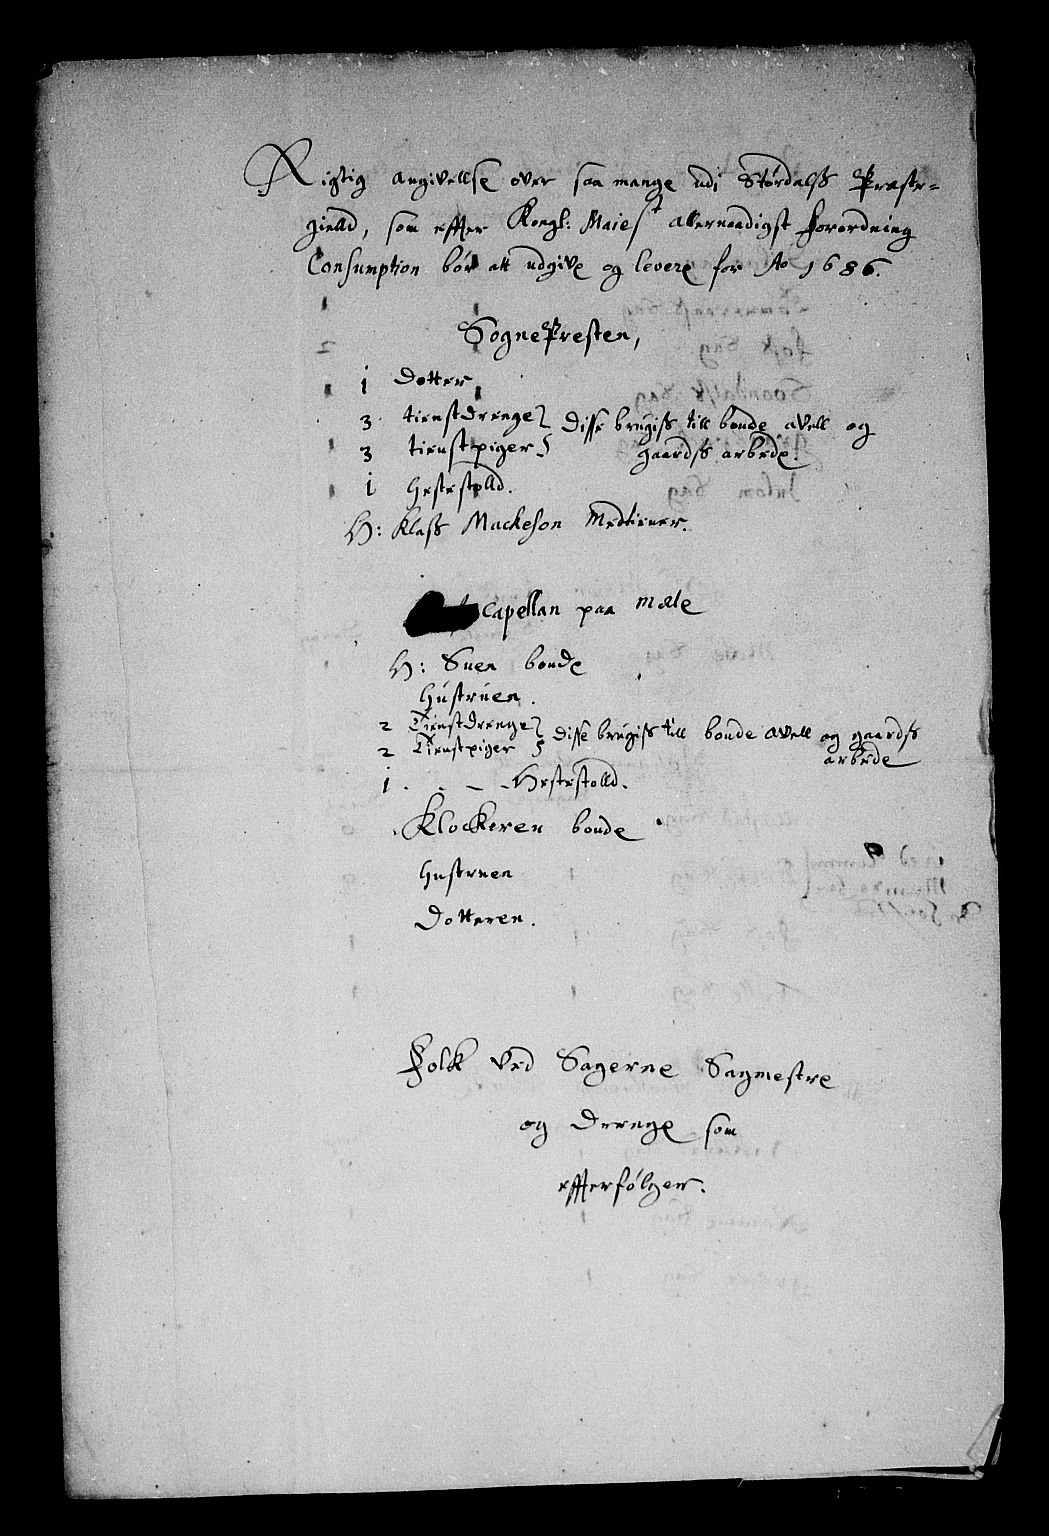 Rigtig angivellse over saa mange udi Størdalss Præste=
gielld, som effter Kongl: Maiest allernaadigst forordning
Consumption bør att udgive og levere for Ao 1686.
SognePresten,
1 Dotter
3 tienstdrenge } disse brugiss till bonde avell og
3 tienstpiger } gaardss arbede.
1 Hestestolld.
H: Klass Mackeson Medtiener.
Capellan paa Mæle
H: Suen bonde
Hustruen.
2 Tienstdrenge } disse brugiss till bonde avell og gaardss
2 Tienstpiger } arbede
1 . - - - Hestestolld.
Klockeren bonde
Hustruen
Dotteren.
Folk ved Sagerne Sagmestre
og drenge som
effterfølger.